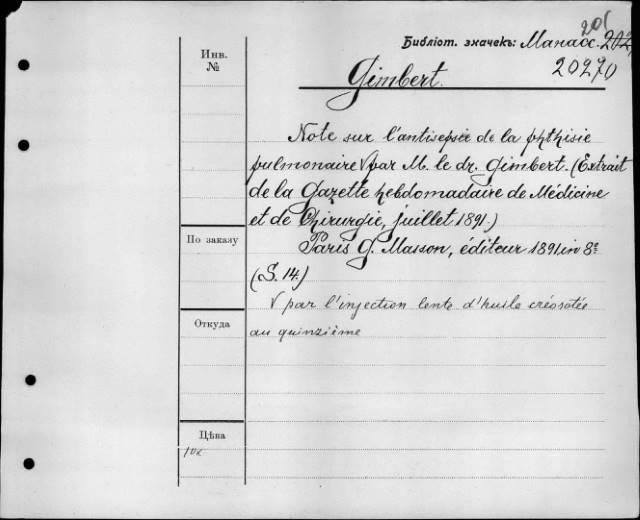 201
Библіот. значекъ: Манаос. 202
20270
Инв.
№
Gimbert.
Note sur l'antisepsie de la phthisie
pulmonaire V par M. le dr. Gimbert. (Extrait
de la Gazette hebdomadaire de Médicine
et de Chirurgie, juillet 1891.)
По заказу
Paris G. Masson, éditeur 1891 in 8º
(S. 14.)
V par l'injection lente d'huile créosotée
Откуда
au quinzième
Цѣна